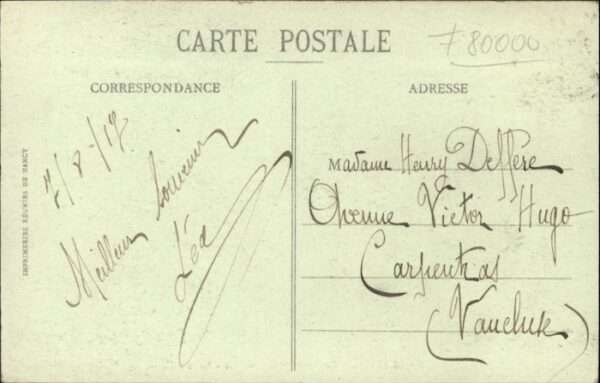 CARTE POSTALE
F 80000
CORRESPONDANCE
ADRESSE
7/8-/17
Meilleur Souvenir
Léa
Madame Henry Deffère
Avenue Victor Hugo
Carpentras
(Vaucluse)
IMPRIMERIES RÉUNIES DE NANCY